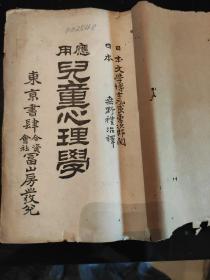 日本文學博士元良勇次郎閲
日本 桑野禮治譯
應用兒童心理學
東京書肆 合資會社 冨山房發兌